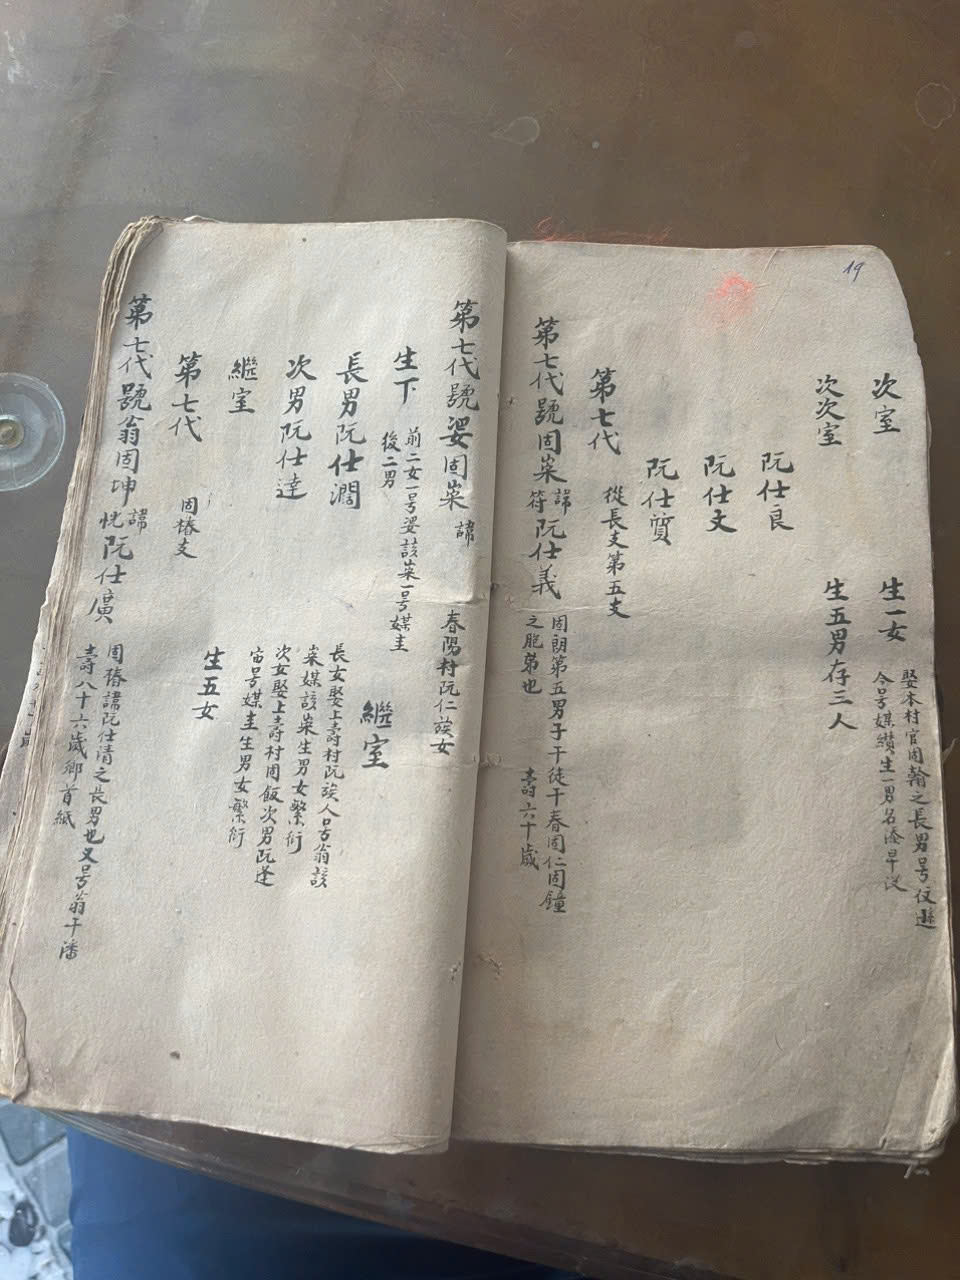 19
次室
生一女
娶本村官固翰之長男号伩遜
今号媒纘生一男名湊早没
次次室
生五男存三人
阮仕良
阮仕文
阮仕質
第七代
從長支第五支
第七代號固寀
諱
符
阮仕義
固朗第五男子干徒干春固仁固鐘
之胞弟也
壽六十歲
第七代號婆固寀
諱
春陽村阮仁族女
生下
前二女一号婆該寀一号媒圭
後二男
繼室
長男阮仕濶
長女娶上壽村阮族人号翁該
寀媒該寀生男女繁衍
次男阮仕達
次女娶上壽村固飯次男阮逢
宙号媒圭生男女繁衍
繼室
生五女
第七代
固椿支
第七代號翁固坤
諱
恍
阮仕廣
固椿諱阮仕清之長男也又号翁干潘
壽八十六歲鄉首紙